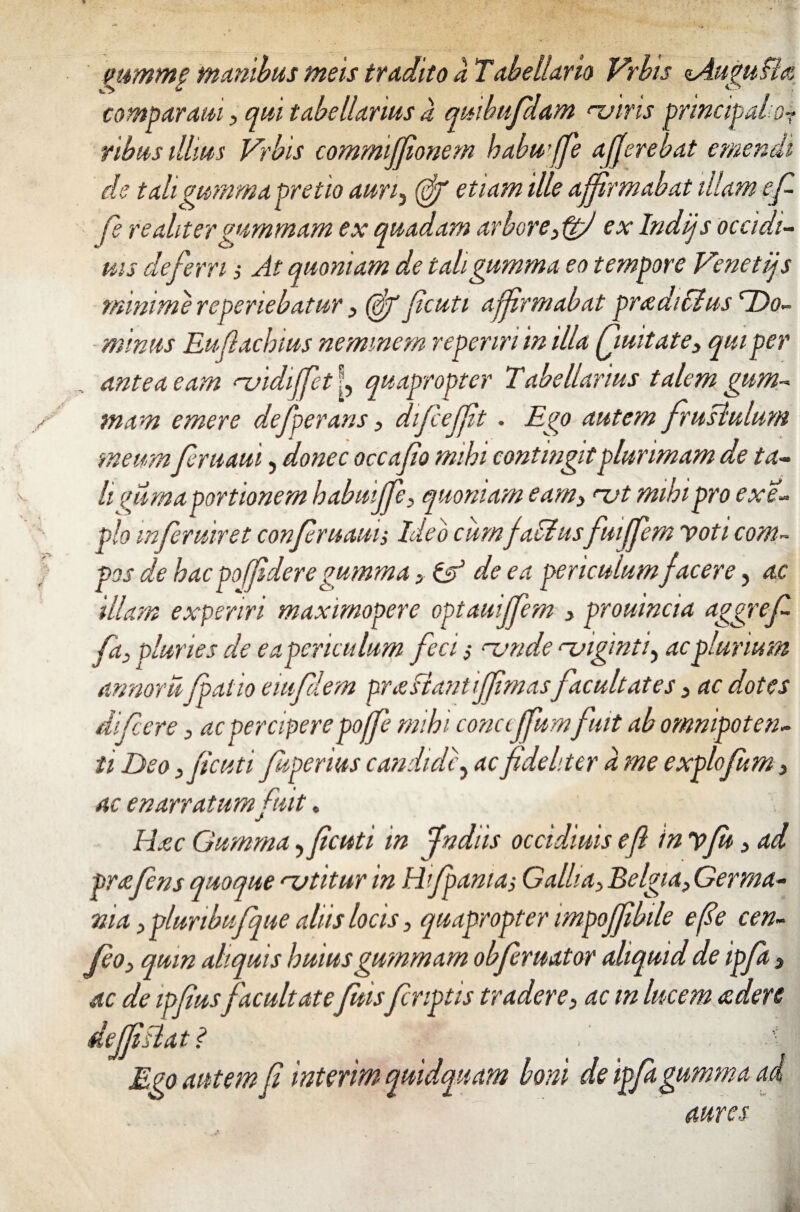 gummę manibus meis tradito à Tabellario Vrbis Augustæ
comparaui, qui tabellarius à quibusdam viris principalio-
ribus illius Vrbis commissionem habuisse asserebat emendi
de tali gumma pretio auri, & etiam ille affirmabat illam es-
se realiter gummam ex quadam arbore, & ex Indijs occidi-
uis deferri; At quoniam de tali gumma eo tempore Venetijs
minimè reperiebatur, & sicuti affirmabat prædictus Do-
minus Eustachius neminem reperiri in illa Ciuitate, qui per
antea eam vidisset, quapropter Tabellarius talem gum-
mam emere desperans, discessit. Ego autem frustulum
meum seruaui, donec occasio mihi contingit plurimam de ta-
li gūma portionem habuisse, quoniam eam, vt mihi pro exē-
plo inseruiret conseruaui; Ideò cùm factus fuissem voti com-
pos de hac possidere gumma, & de ea periculum facere, ac
illam experiri maximopere optauissem, prouincia aggres-
sa, pluries de ea periculum feci; vnde viginti, ac plurium
annorū spatio eiusdem præstantissimas facultates, ac dotes
discere, ac percipere posse mihi concessum fuit ab omnipoten-
ti Deo, sicuti superius candidè, ac fideliter à me explosum,
ac enarratum fuit.
Hæc Gumma, sicuti in Indiis occidiuis est in vsu, ad
præsens quoque vtitur in Hispania; Gallia, Belgia, Germa-
nia, pluribusque aliis locis, quapropter impossibile esse cen-
seo, quin aliquis huius gummam obseruator aliquid de ipsa,
ac de ipsius facultate suis scriptis tradere, ac in lucem ædere
dessistat?
Ego autem si interim quidquam boni de ipsa gumma ad
aures